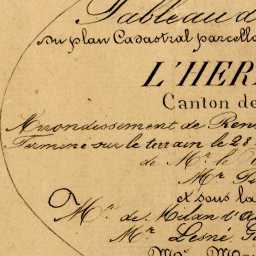 Tableau d
Du plan Cadastral parcella
L'HER
Canton de
Arrondissement de Ren
Terminé sur le terrain le 28
de Mr. le
Mr
et sous la
Mr. de Milan d'A
Mr. Lesné, G